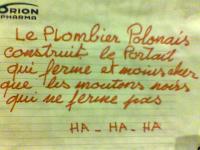 ORION
PHARMA
Le Plombier Polonais
construit le Portail
qui ferme et moins cher
que les moutons noirs
qui ne ferme pas
HA - HA - HA